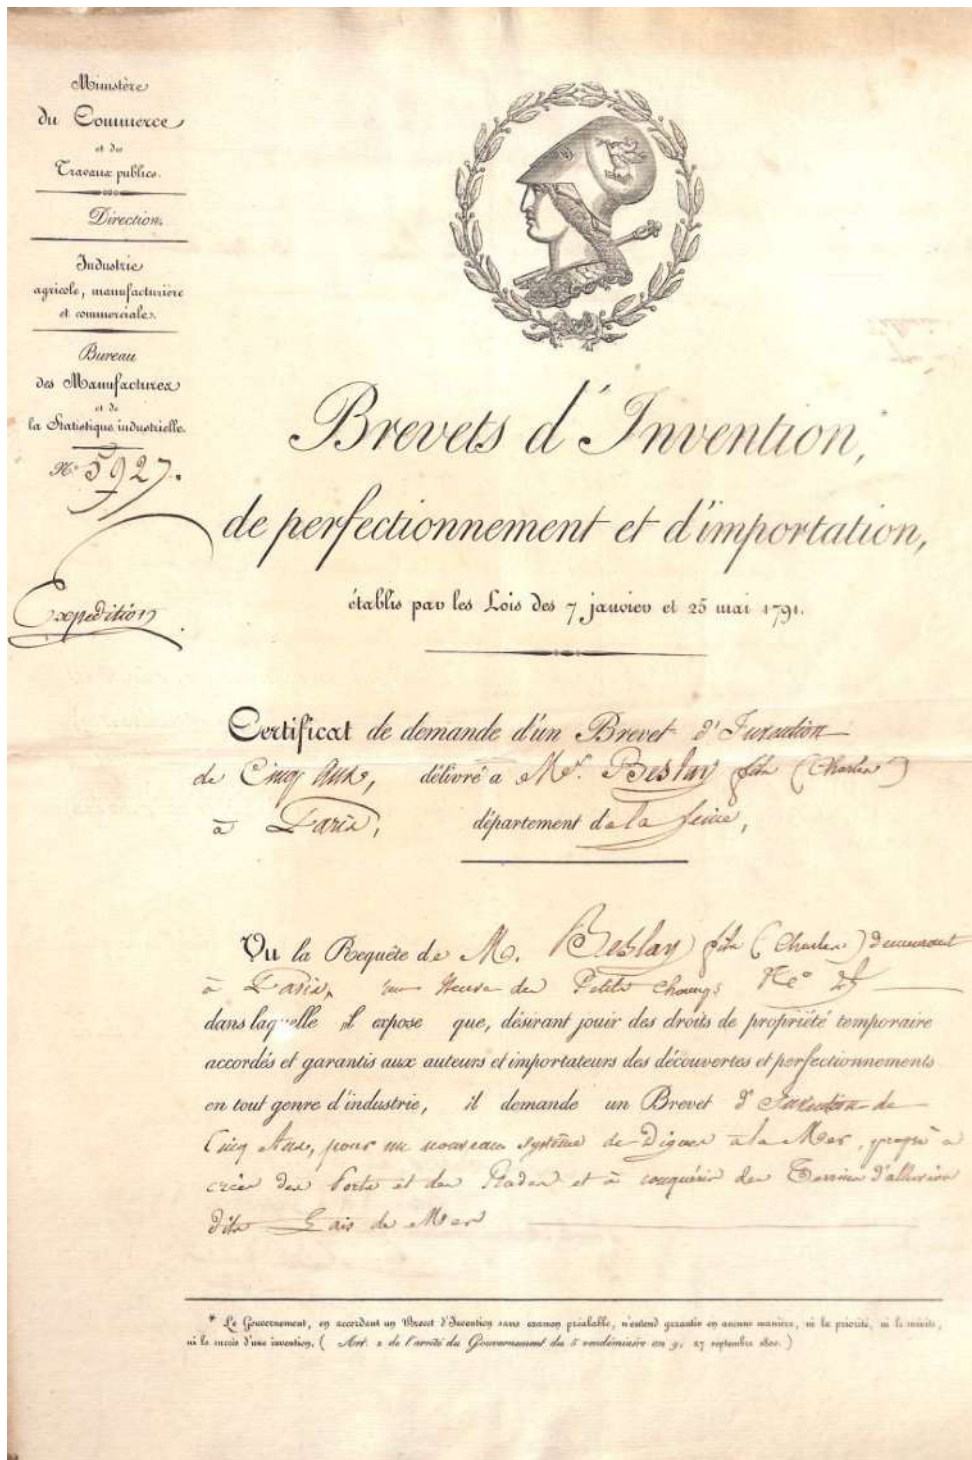 Ministère
du Commerce
et des
Travaux publics.
Direction.
Industrie
agricole, manufacturière
et commerciale.
Bureau
des Manufactures
et de
la Statistique industrielle.
N° 5927.
Expédition
Brevets d'Invention,
de perfectionnement et d'importation,
établis par les Lois des 7 janvier et 25 mai 1791.
Certificat de demande d'un Brevet d'Invention
de Cinq Ans, délivré à Mr. Beslay fils (Charles)
à Paris, département de la Seine,
Vu la Requête de M. Beslay fils (Charles) demeurant
à Paris, rue Neuve des Petits Champs N°
dans laquelle il expose que, désirant jouir des droits de propriété temporaire
accordés et garantis aux auteurs et importateurs des découvertes et perfectionnements
en tout genre d'industrie, il demande un Brevet d'Invention de
Cinq Ans, pour un nouveau système de Digues à la Mer, propre à
créer des Ports et des Rades et à conquérir des Terrains d'alluvion
dits Lais de Mer
* Le Gouvernement, en accordant un Brevet d'Invention sans examen préalable, n'entend garantir en aucune manière, ni la priorité, ni le mérite,
ni le succès d'une invention. ( Art. 2 de l'arrêté du Gouvernement du 5 vendémiaire an 9, 27 septembre 1800. )